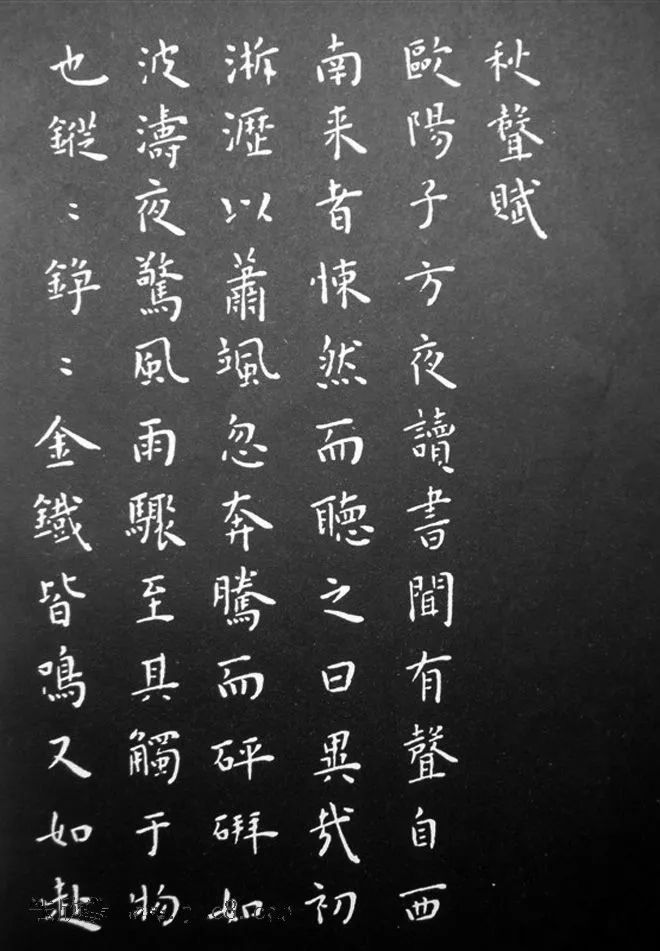 秋聲賦
歐陽子方夜讀書聞有聲自西
南来者悚然而聽之曰異哉初
淅瀝以蕭颯忽奔騰而砰硑如
波濤夜驚風雨驟至其觸于物
也鏦〻錚〻金鐵皆鳴又如赴